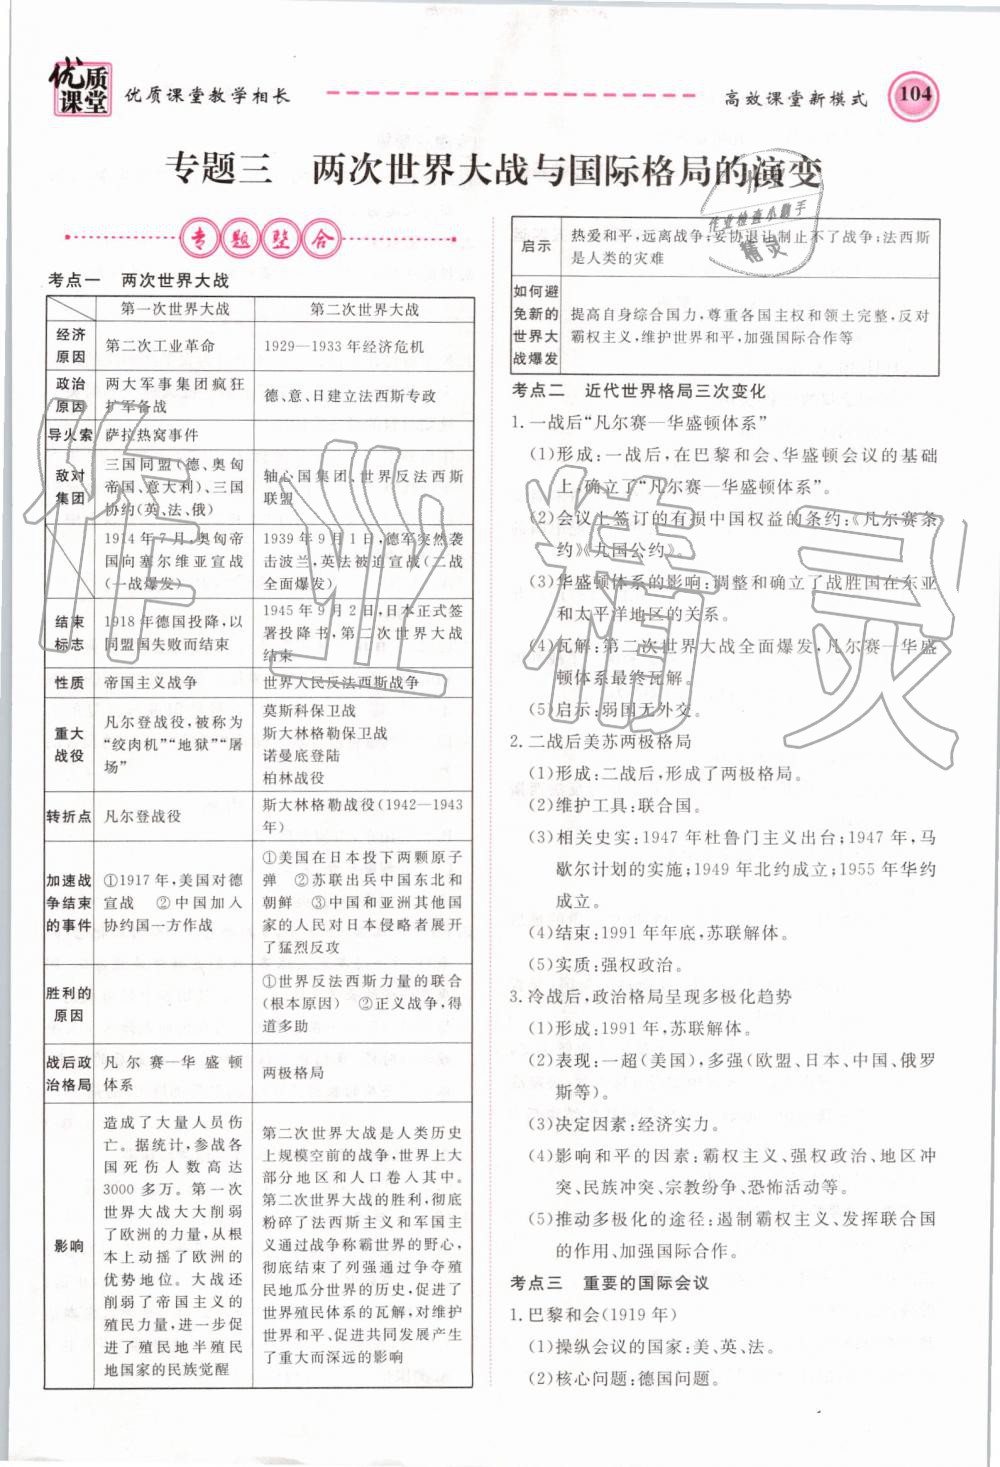 优质课堂
优质课堂教学相长
高效课堂新模式
104
专题三 两次世界大战与国际格局的演变
专题整合
考点一 两次世界大战
第一次世界大战 第二次世界大战
经济原因 第二次工业革命 1929—1933年经济危机
政治原因 两大军事集团疯狂
扩军备战
德、意、日建立法西斯专政
导火索 萨拉热窝事件
敌对集团
三国同盟(德、奥匈
帝国、意大利)、三国
协约(英、法、俄)
轴心国集团、世界反法西斯
联盟
1914年7月,奥匈帝
国向塞尔维亚宣战
(一战爆发)
1939年9月1日,德军突然袭
击波兰,英法被迫宣战(二战
全面爆发)
结束标志
1918年德国投降,以
同盟国失败而结束
1945年9月2日,日本正式签
署投降书,第二次世界大战
结束
性质 帝国主义战争 世界人民反法西斯战争
重大战役
凡尔登战役,被称为
“绞肉机”“地狱”“屠
场”
莫斯科保卫战
斯大林格勒保卫战
诺曼底登陆
柏林战役
转折点 凡尔登战役
斯大林格勒战役(1942—1943
年)
加速战
争结束
的事件
①1917年,美国对德
宣战 ②中国加入
协约国一方作战
①美国在日本投下两颗原子
弹 ②苏联出兵中国东北和
朝鲜 ③中国和亚洲其他国
家的人民对日本侵略者展开
了猛烈反攻
胜利的
原因
①世界反法西斯力量的联合
(根本原因) ②正义战争,得
道多助
战后政
治格局
凡尔赛—华盛顿
体系
两极格局
影响
造成了大量人员伤
亡。据统计,参战各
国死伤人数高达
3000多万。第一次
世界大战大大削弱
了欧洲的力量,从根
本上动摇了欧洲的
优势地位。大战还
削弱了帝国主义的
力量,进一步促进
了殖民地半殖民
地国家的民族觉醒
第二次世界大战是人类历史
上规模空前的战争,世界上大
部分地区和人口卷入其中。
第二次世界大战的胜利,彻底
粉碎了法西斯主义和军国主
义通过战争称霸世界的野心,
彻底结束了列强通过大国殖
民地瓜分世界的历史,促进了
世界殖民体系的瓦解,对维护
世界和平、促进共同发展产生
了重大而深远的影响
启示
热爱和平,远离战争;妥协退让制止不了战争;法西斯
是人类的灾难
如何避
免新的
世界大
战爆发
提高自身综合国力,尊重各国主权和领土完整,反对
霸权主义,维护世界和平、加强国际合作等
考点二 近代世界格局三次变化
1.一战后“凡尔赛—华盛顿体系”
(1)形成:一战后,在巴黎和会、华盛顿会议的基础
上,确立了“凡尔赛—华盛顿体系”。
(2)会议上签订的有损中国权益的条约:《凡尔赛条
约》《九国公约》。
(3)华盛顿体系的影响:调整和确立了战胜国在东亚
和太平洋地区的关系。
(4)瓦解:第二次世界大战全面爆发,凡尔赛—华盛
顿体系最终瓦解。
(5)启示:弱国无外交。
2.二战后美苏两极格局
(1)形成:二战后,形成了两极格局。
(2)维护工具:联合国。
(3)相关史实:1947年杜鲁门主义出台;1947年,马
歇尔计划的实施;1949年北约成立;1955年华约
成立。
(4)结束:1991年年底,苏联解体。
(5)实质:强权政治。
3.冷战后,政治格局呈现多极化趋势
(1)形成:1991年,苏联解体。
(2)表现:一超(美国),多强(欧盟、日本、中国、俄罗
斯等)。
(3)决定因素:经济实力。
(4)影响和平的因素:霸权主义、强权政治、地区冲
突、民族冲突、宗教纷争、恐怖活动等。
(5)推动多极化的途径:遏制霸权主义、发挥联合国
的作用、加强国际合作。
考点三 重要的国际会议
1.巴黎和会(1919年)
(1)操纵会议的国家:美、英、法。
(2)核心问题:德国问题。
作业精灵
作业检查小助手
精灵